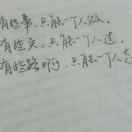 有些事，只能一个人做。
有些关，只能一个人过。
有些路啊，只能一个人走